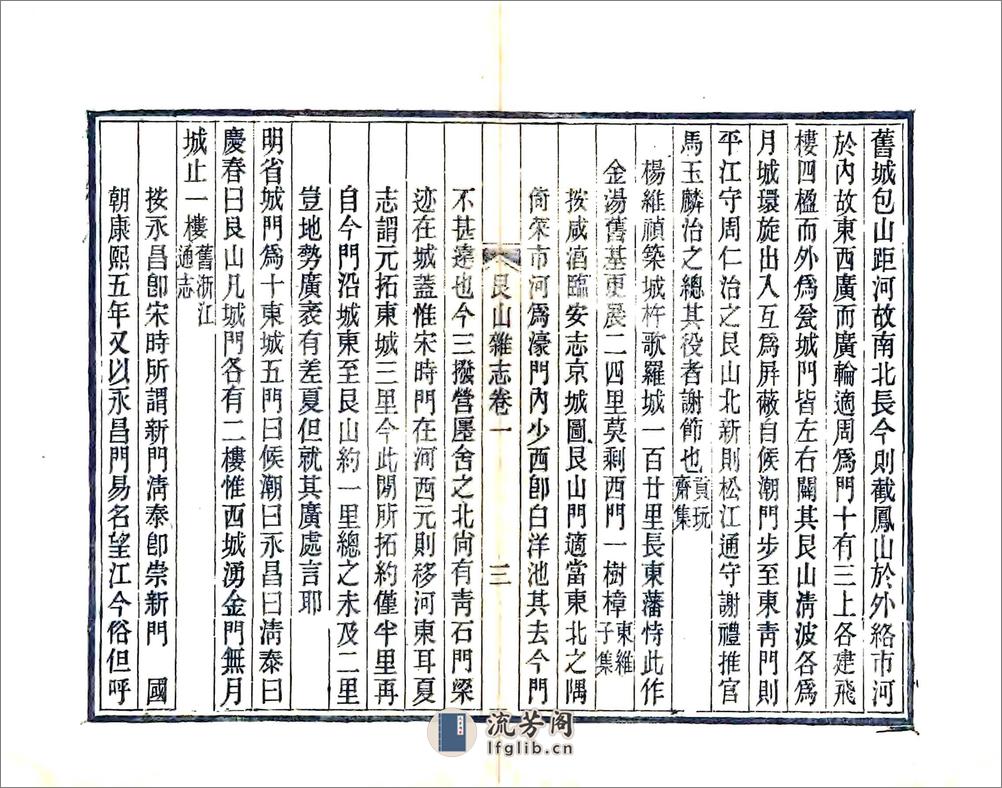 舊城包山距河故南北長今則截鳳山於外絡市河
於內故東西廣而廣輪適周爲門十有三上各建飛
樓四楹而外爲瓮城門皆左右闢其艮山淸波各爲
月城環旋出入互爲屏蔽自候潮門步至東靑門則
平江守周仁治之艮山北新則松江通守謝禮推官
馬玉麟治之總其役者謝節也貢玩齋集
楊維禎築城杵歌羅城一百廿里長東藩恃此作
金湯舊基更展二四里莫剩西門一樹樟東維子集
按咸酒臨安志京城圖艮山門適當東北之隅
倚菜市河爲濠門內少西卽白洋池其去今門
艮山雜志卷一
三
不甚遠也今三撥營壘舍之北尙有靑石門梁
迹在城蓋惟宋時門在河西元則移河東耳夏
志謂元拓東城三里今此閒所拓約僅半里再
自今門沿城東至艮山約一里總之未及二里
豈地勢廣袤有差夏但就其廣處言耶
明省城門爲十東城五門曰候潮曰永昌曰淸泰曰
慶春曰艮山凡城門各有二樓惟西城湧金門無月
城止一樓舊浙江通志
按永昌卽宋時所謂新門淸泰卽崇新門 國
朝康熙五年又以永昌門易名望江今俗但呼
流芳阁
lfglib.cn